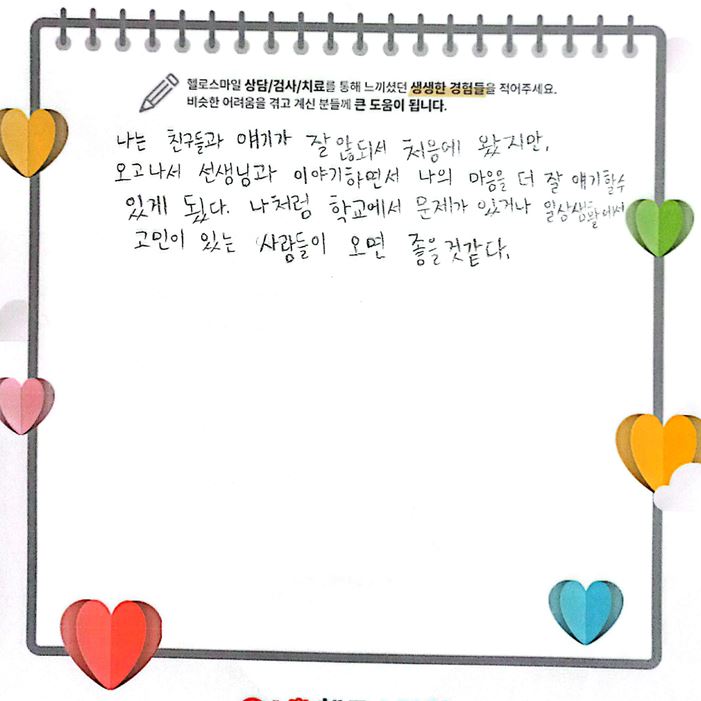 헬로스마일 상담/검사/치료를 통해 느끼셨던 생생한 경험들을 적어주세요.
비슷한 어려움을 겪고 계신 분들께 큰 도움이 됩니다.
나는 친구들과 얘기가 잘 않되서 처음에 왔지만,
오고나서 선생님과 이야기하면서 나의 마음을 더 잘 얘기할수
있게 됬다. 나처럼 학교에서 문제가 있거나 일상생활에서
고민이 있는 사람들이 오면 좋을것같다.